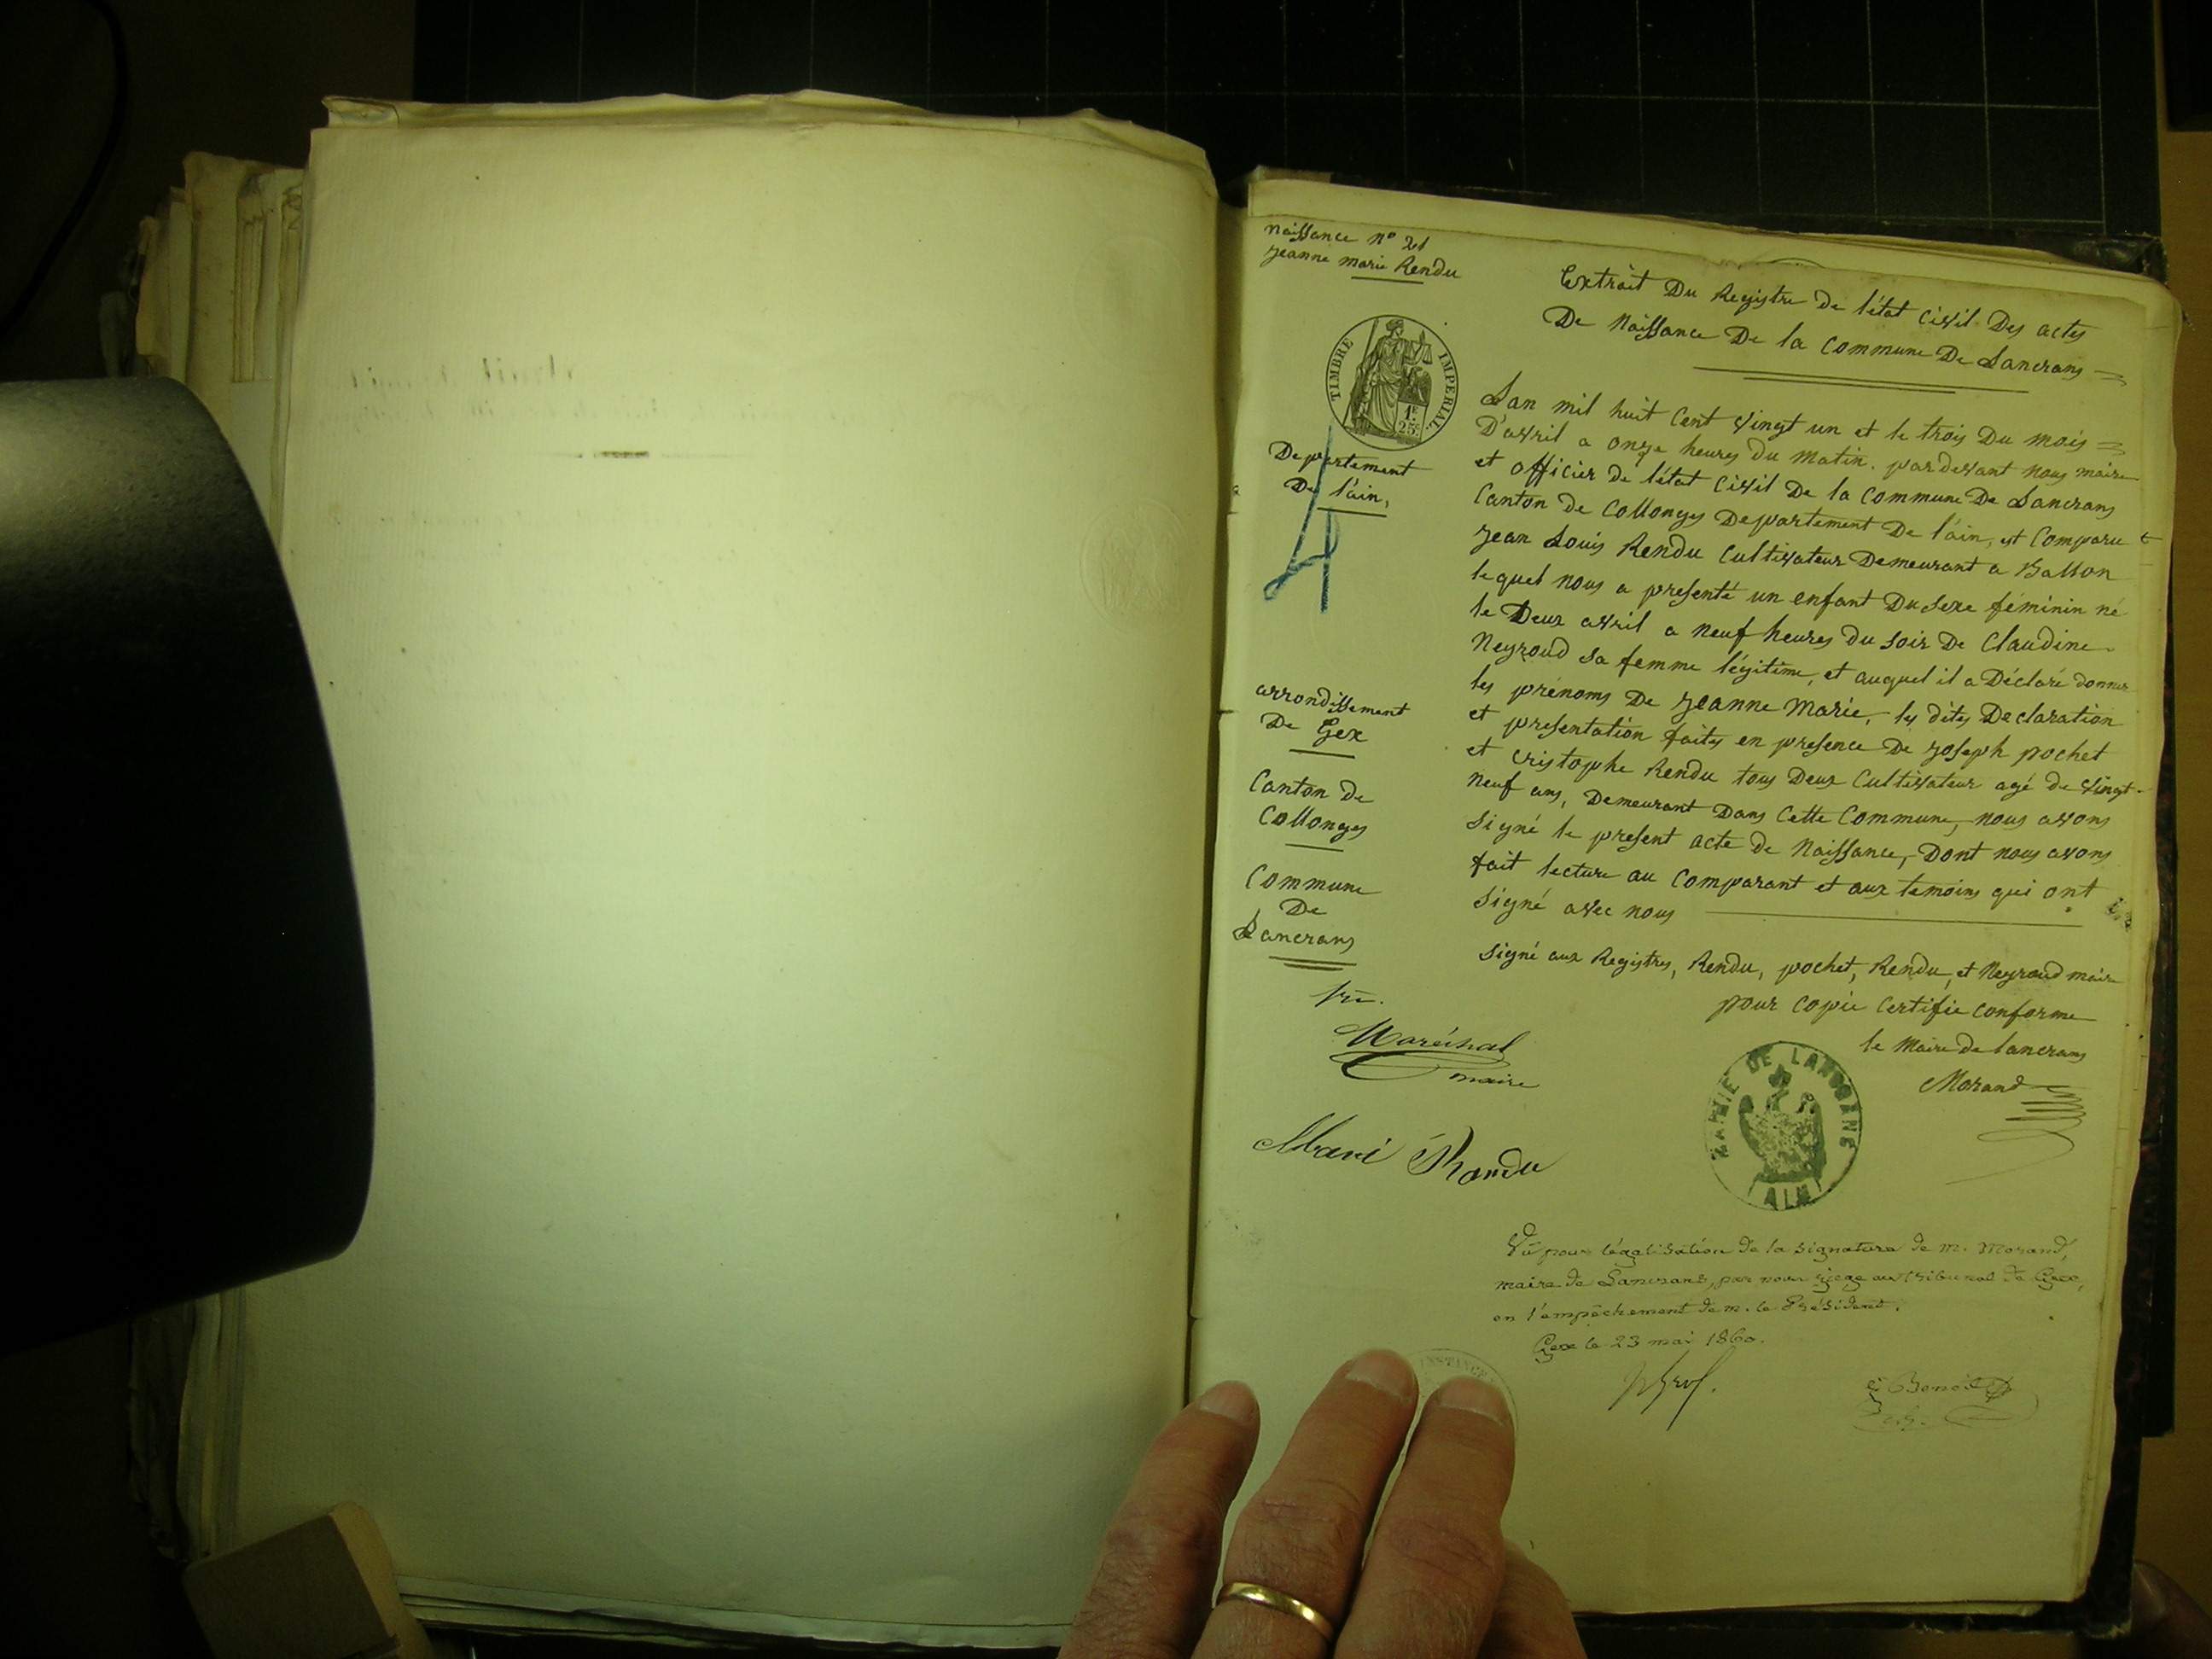 naissance n° 21
jeanne marie Rendu
Extrait Du Registre de l'état Civil Des actes
De Naissance De la Commune De Lancrans
TIMBRE IMPERIAL
1F
25c
Departement
De l'ain,
4
arrondissement
De Gex
Canton de
Collonges
Commune
De
Lancrans
Lan mil huit Cent vingt un et le trois Du mois
D'avril a onze heures du matin. pardevant nous maire
et officier de l'état Civil De la Commune De Lancrans
Canton de Collonges Departement De l'ain, est Comparu
jean Louis Rendu Cultivateur Demeurant a Ballon
lequel nous a presenté un enfant Du Sexe féminin né
le Deux avril a neuf heures du soir De Claudine
Neyroud sa femme légitime, et auquel il a Déclaré donner
les prénoms De jeanne Marie, les dites Declaration
et presentation faites en presence De joseph pochet
et Cristophe Rendu tous Deux Cultivateur agé de vingt-
neuf ans, Demeurant Dans Cette Commune, nous avons
signé le present acte de Naissance, Dont nous avons
fait lecture au Comparant et aux temoins qui ont
signé avec nous
signé aux Registres, Rendu, pochet, Rendu, et Neyroud maire
pour Copie Certifie Conforme
le Maire de lancrans
Morand
Maréchal
maire
Mari Randu
MAIRIE DE LANCRANS
(AIN)
Vu pour légalisation de la signature de m. Morand,
maire de Lancrans, par nous juge au tribunal de Gex,
en l'empêchement de m. le Président.
Gex le 23 mai 1860.
INSTANCE
Benoit